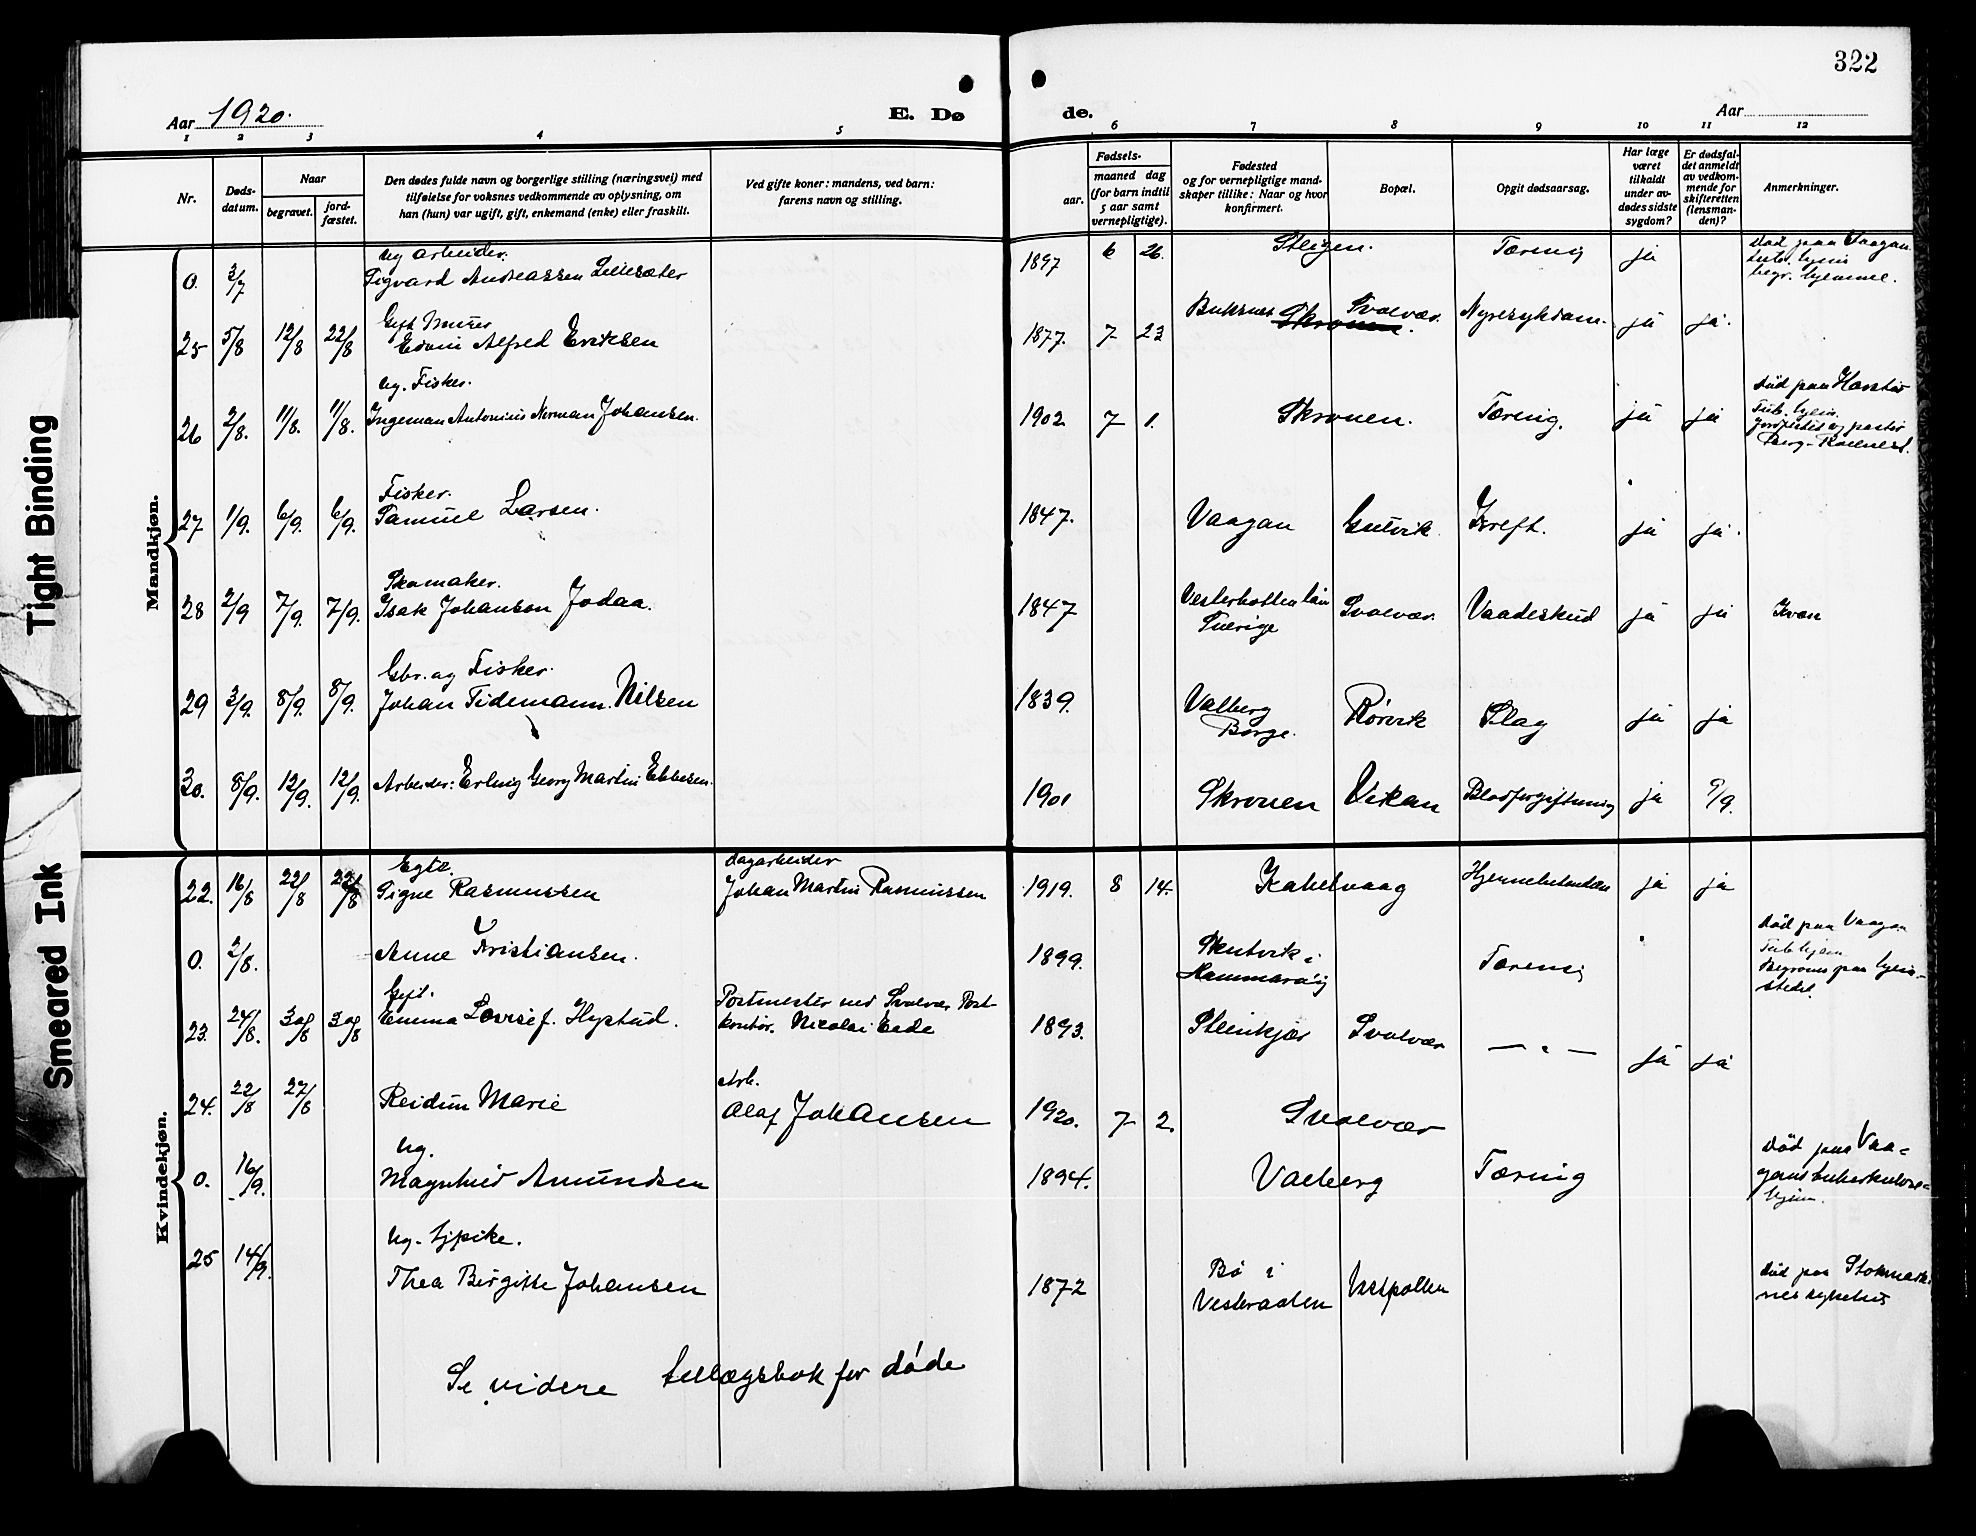 322
Aar 1920.
E. Døde.
Aar
1 2 3 4 5 6 7 8 9 10 11 12
Nr.
Døds-
datum.
Naar
begravet.
jord-
fæstet.
Den dødes fulde navn og borgerlige stilling (næringsvei) med
tilføielse for voksnes vedkommende av oplysning, om
han (hun) var ugift, gift, enkemand (enke) eller fraskilt.
Ved gifte koner: mandens, ved barn:
farens navn og stilling.
Fødsels-
aar.
maaned dag
(for barn indtil
5 aar samt
vernepligtige).
Fødested
og for vernepligtige mand-
skaper tillike: Naar og hvor
konfirmert.
Bopæl.
Opgit dødsaarsag.
Har læge
været
tilkaldt
under av-
dødes sidste
sygdom?
Er dødsfal-
det anmeldt
av vedkom-
mende for
skifteretten
(lensman-
den)?
Anmerkninger.
Mandkjøn.
ug arbeider.
0. 3/7 Sigvard Andreassen Lillesæter 1897 6 26. Steigen. Tæring ja
død paa Vaagan
tub. hjem
begr. hjemme.
Gift Murer
25 5/8 12/8 22/8 Edvin Alfred Eriksen 1877. 7 23 Buksnes Skroven Svolvær. Nyresykdom. ja ja.
ug. Fisker.
26 2/8. 11/8. 11/8. Ingeman Antonius Norman Johansen. 1902 7 1. Skroven. Tæring. ja ja
død paa Harstad
Tub. hjem.
jordfæstet av pastor
Berg-
Fisker.
27 1/9. 6/9. 6/9. Samuel Larsen. 1847. Vaagan Gulvik Kreft. ja ja.
Skomaker.
28 2/9 7/9. 7/9. Isak Johanson Jodaa. 1847 Vesterbotten län
Sverige Svolvær. Vaadeskud ja ja Kvæn
Gbr. og Fisker.
29 3/9. 8/9. 8/9. Johan Tidemann Nilsen 1839. Valberg
Borge. Rørvik Slag ja ja
30. 8/9. 12/9. 12/9. Arbeider: Erling Georg Martin Ebbesen. 1901 Skroven Vikan Blodforgiftning ja 9/9.
Kvindekjøn.
Egte. dagarbeider
22. 16/8 22/8 22/8 Signe Rasmussen Johan Martin Rasmussen 1919. 8 14. Kabelvaag ja ja
0. 2/8. Anne Kristiansen. 1899. Skutvik i
Hammarøy Tæring
død paa Vaagan
Tub hjem
Begraves paa hjem-
stedet.
Gift. Postmester ved Svolvær Post-
23. 24/8. 30/8 30/8 Emma Lovise f. Hystad. kontor. Nicolai Eede 1893. Steinkjær Svolvær — " — ja ja
Arb.
24. 22/8 27/8 Reidun Marie Olaf Johansen 1920. 7 2. Svolvær
ug.
0. 16/9. Magnhild Amundsen 1894. Valberg Tæring
død paa Vaa-
gans tuberkulose-
hjem.
ug. tjpike.
25 14/9. Thea Birgitte Johansen 1872 Bø i
Vesteraalen Vestpollen
død paa Stokmark-
nes sykehus
Se videre tillægsbok for døde
Tight Binding
Smeared Ink